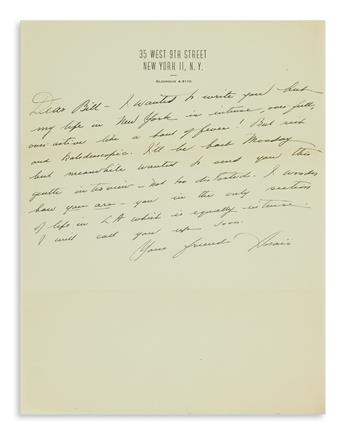 35 WEST 9TH STREET
NEW YORK 11, N. Y.
Dear Bill – I wanted to write you but
my life in New York is intense, over full,
over active like a bout of fever! But rich
and Kaleidoscopic. I'll be back Monday
but meanwhile wanted to send you this
gentle interview – not too distorted. I wonder
how you are – you in the only section
of life in LA which is equally intense.
I will call you up soon.
Your friend Anais